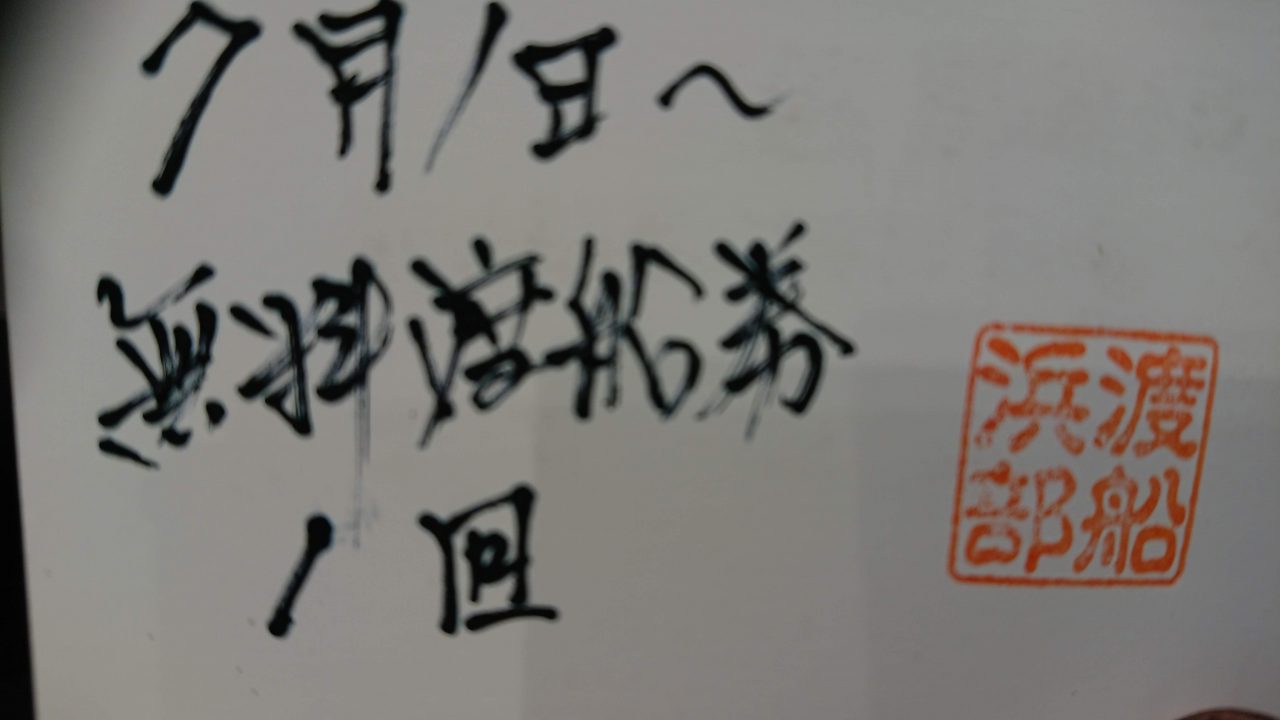 7月1日~
無料渡船券
1回
渡船
浜部